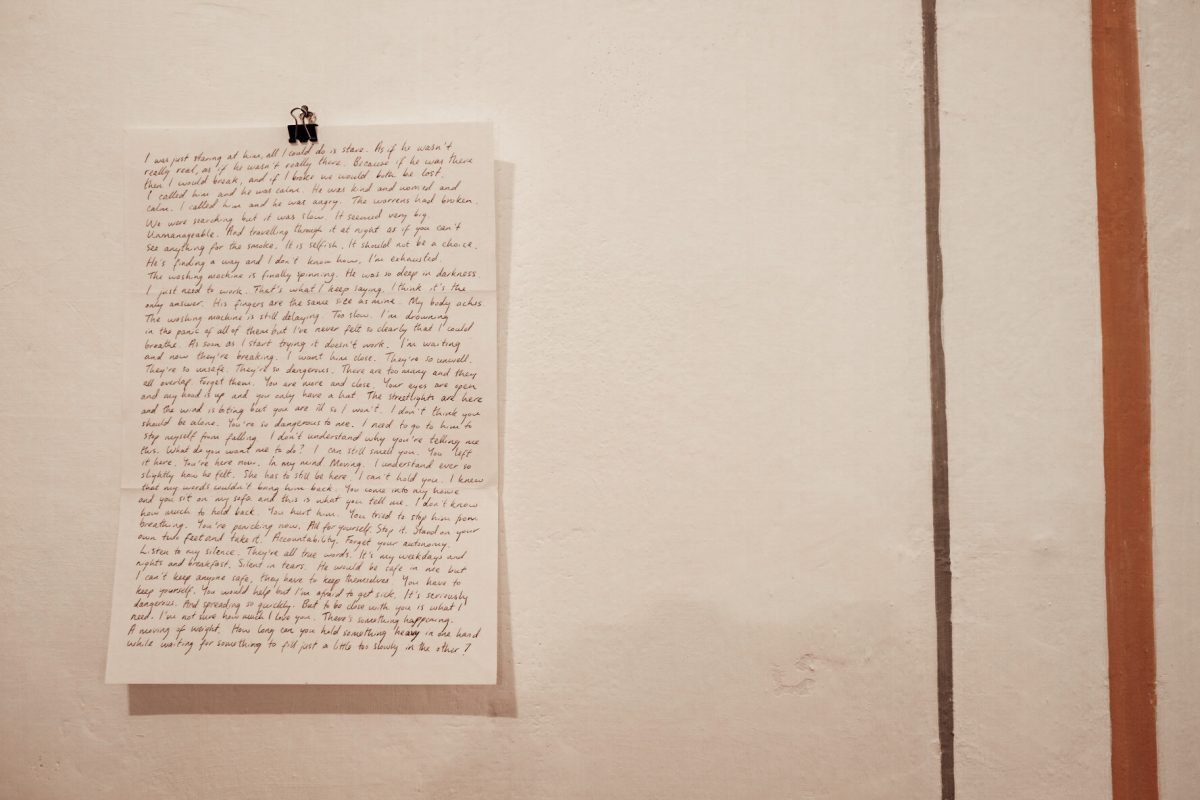 I was just staring at him, all I could do is stare. As if he wasn't
really real, as if he wasn't really there. Because if he was there
then I would break, and if I broke we would both be lost.
I called him and he was calm. He was kind and worried and
calm. I called him and he was angry. The worrens had broken.
We were searching but it was slow. It seemed very big.
Unmanageable. And travelling through it at night as if you can't
see anything for the smoke. It is selfish. It should not be a choice.
He's finding a way and I don't know how. I'm exhausted.
The washing machine is finally spinning. He was so deep in darkness
I just need to work. That's what I keep saying. I think it's the
only answer. His fingers are the same size as mine. My body aches.
The washing machine is still delaying. Too slow. I'm drowning
in the panic of all of them but I've never felt so clearly that I could
breathe. As soon as I start trying it doesn't work. I'm waiting
and now they're breaking. I want him close. They're so unwell.
They're so unsafe. They're so dangerous. There are too many and they
all overlap. Forget them. You are more and close. Your eyes are open
and my hood is up and you only have a hat. The streetlights are here
and the wind is biting but you are ill so I won't. I don't think you
should be alone. You're so dangerous to me. I need to go to him to
stop myself from falling. I don't understand why you're telling me
this. What do you want me to do? I can still smell you. You left
it here. You're here now. In my mind. Moving. I understand ever so
slightly how he felt. She has to still be here. I can't hold you. I knew
that my words wouldn't bring him back. You come into my house
and you sit on my sofa and this is what you tell me. I don't know
how much to hold back. You hurt him. You tried to stop him from
breathing. You're panicking now. All for yourself. Stop it. Stand on your
own two feet and take it. Accountability. Forget your autonomy.
Listen to my silence. They're all true words. It's my weekdays and
nights and breakfast. Silent in tears. He would be safe in me but
I can't keep anyone safe, they have to keep themselves. You have to
keep yourself. You would help but I'm afraid to get sick. It's seriously
dangerous. And spreading so quickly. But to be close with you is what I
need. I'm not sure how much I love you. There's something happening.
A moving of weight. How long can you hold something heavy in one hand
while waiting for something to fill just a little too slowly in the other?